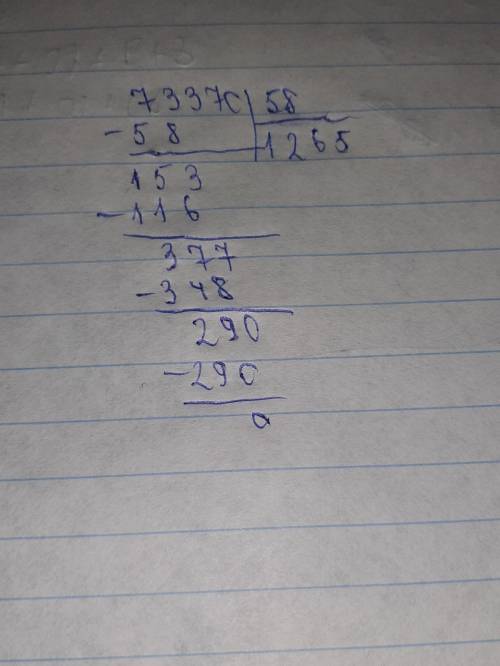 73370 58
- 58 1265
153
- 116
377
- 348
290
- 290
0